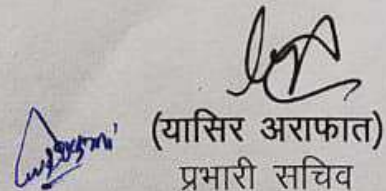 (यासिर अराफात)
प्रभारी सचिव